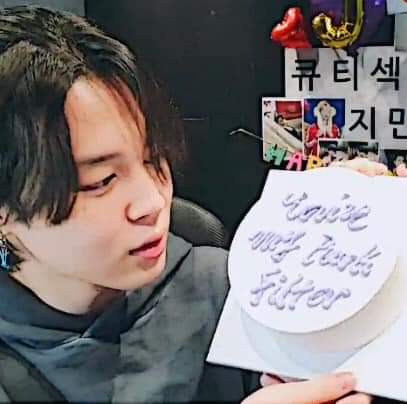 큐티섹
지민
HAP
You're
my funk
filter